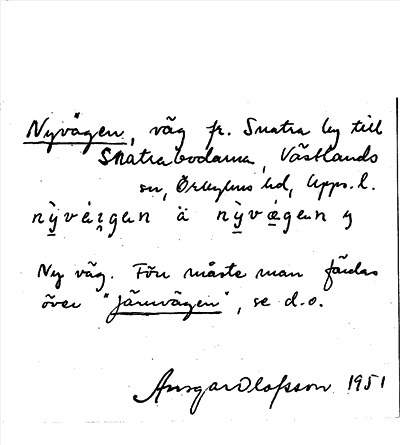 Nyvägen, väg fr. Snatra by till
Snatrabodarna, Västlands
sn, Örbyhus hd, Upps. l.
ä
Ny väg. Förr måste man färdas
över "Järnvägen", se d.o.
Ansgar Olofsson 1951